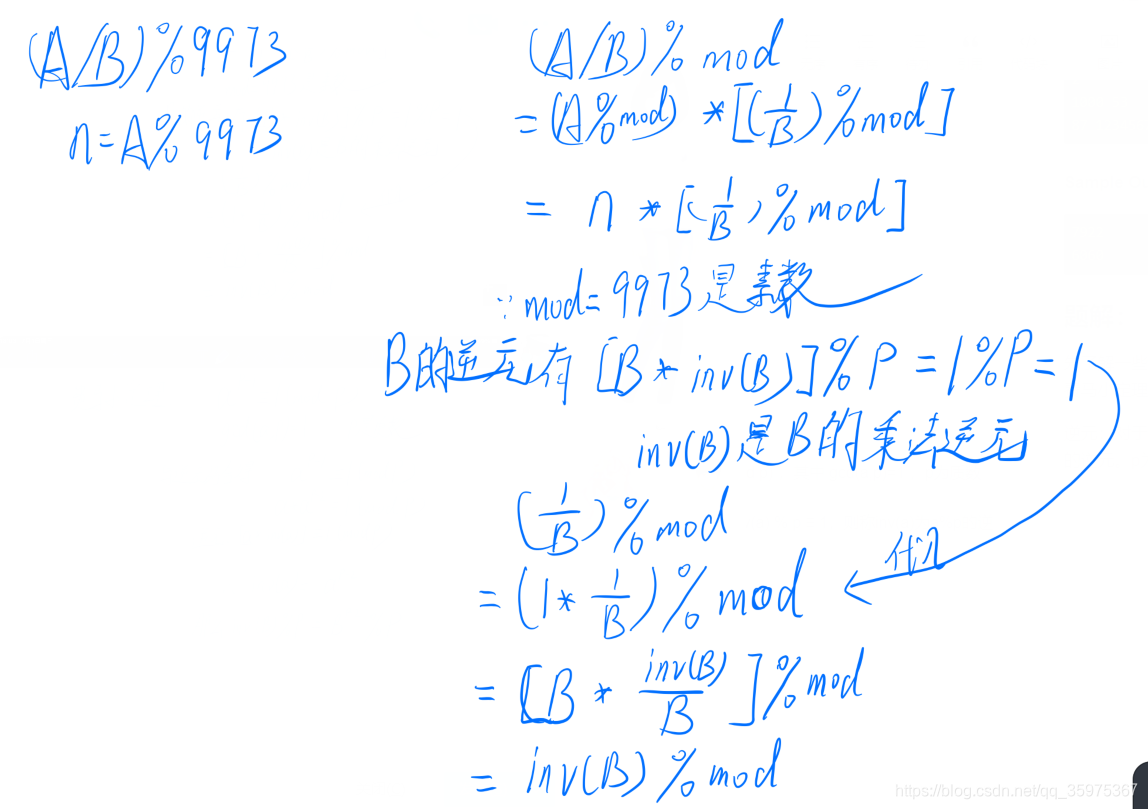 (A/B)%9973
n=A%9973
(A/B)% mod
=(A%mod) *[(1/B)%mod]
= n *[(1/B)%mod]
∵mod=9973是素数
B的逆元有 [B*inv(B)]%P=1%P=1
inv(B)是B的乘法逆元
(1/B)%mod
=(1*1/B)%mod
代入
=[B*inv(B)/B]%mod
=inv(B)%mod